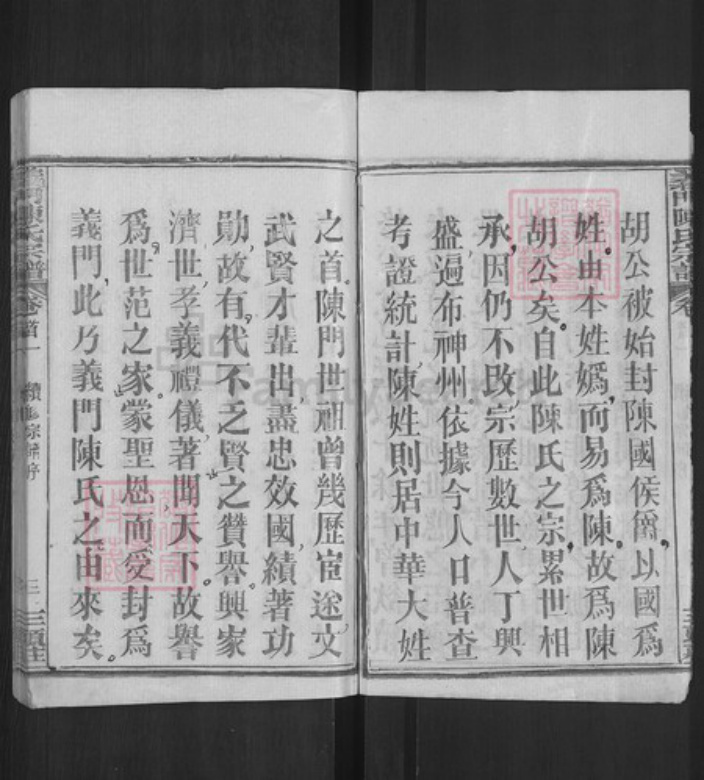 胡公被始封陳國侯爵以國爲
姓。由本姓嬀，而易爲陳。故爲陳
胡公矣。自此陳氏之宗，累世相
承，因仍不改。宗歷數世，人丁興
盛，遍布神州，依據今人口普查
考證統計，陳姓則居中華大姓
之首。陳門世祖曾幾歷宦途，文
武賢才輩出，盡忠效國，績著功
勛，故有，代不乏賢，之贊譽。興家
濟世，孝義禮儀，著聞天下。故譽
爲，世范之家，蒙聖恩而愛封爲
義門，此乃義門陳氏之由來矣。
義門陳氏宗譜
卷首一
宗譜序
三